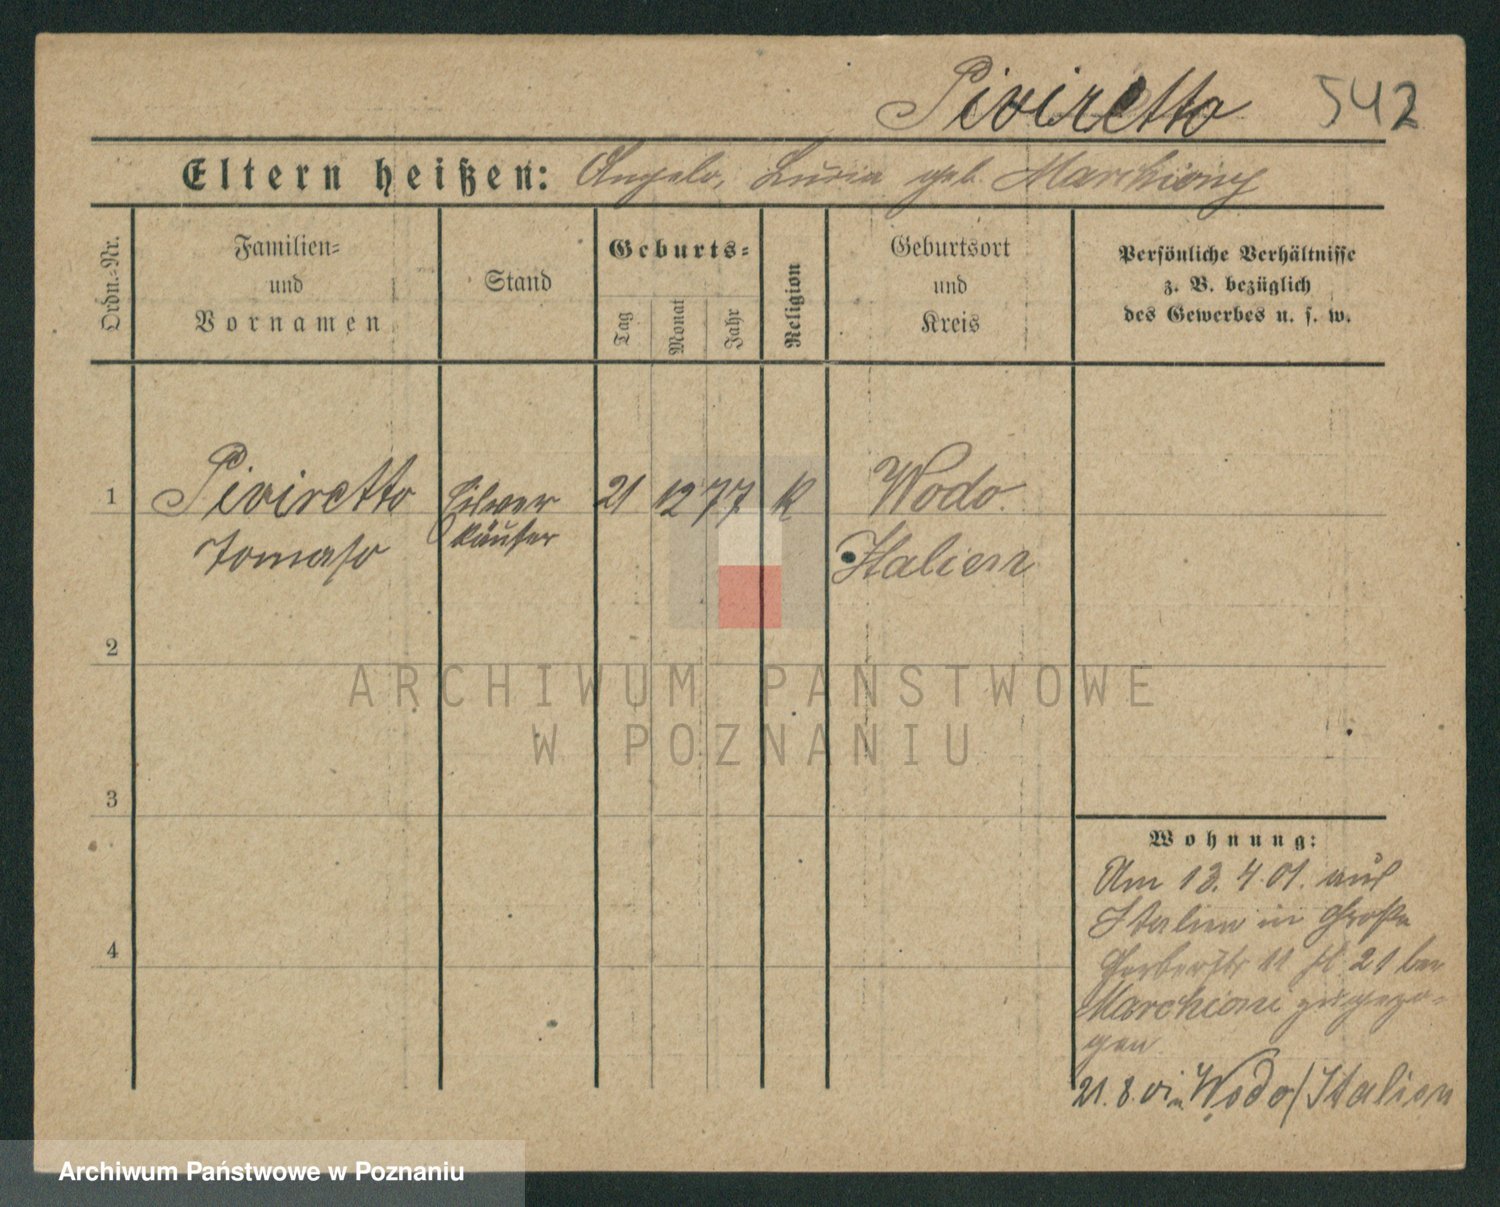 Piviretto 542
Eltern heißen: Angelo, Luzia geb. Marchiony
Ordn.-Nr.
Familien-
und
Vornamen
Stand
Geburts-
Tag
Monat
Jahr
Religion
Geburtsort
und
Kreis
Persönliche Verhältnisse
z. B. bezüglich
des Gewerbes u. s. w.
1 Piviretto 21 12 77 K Wodo.
Tomaso käufer Italien
2
ARCHIWUM PAŃSTWOWE
W POZNANIU
3
4
Wohnung:
Am 13. 4. 01. aus
Italien in Große
Gerberstr 11 21 bei
Marchioni zugezo-
gen
21. 8. 01 n Wodo/Italien
Archiwum Państwowe w Poznaniu